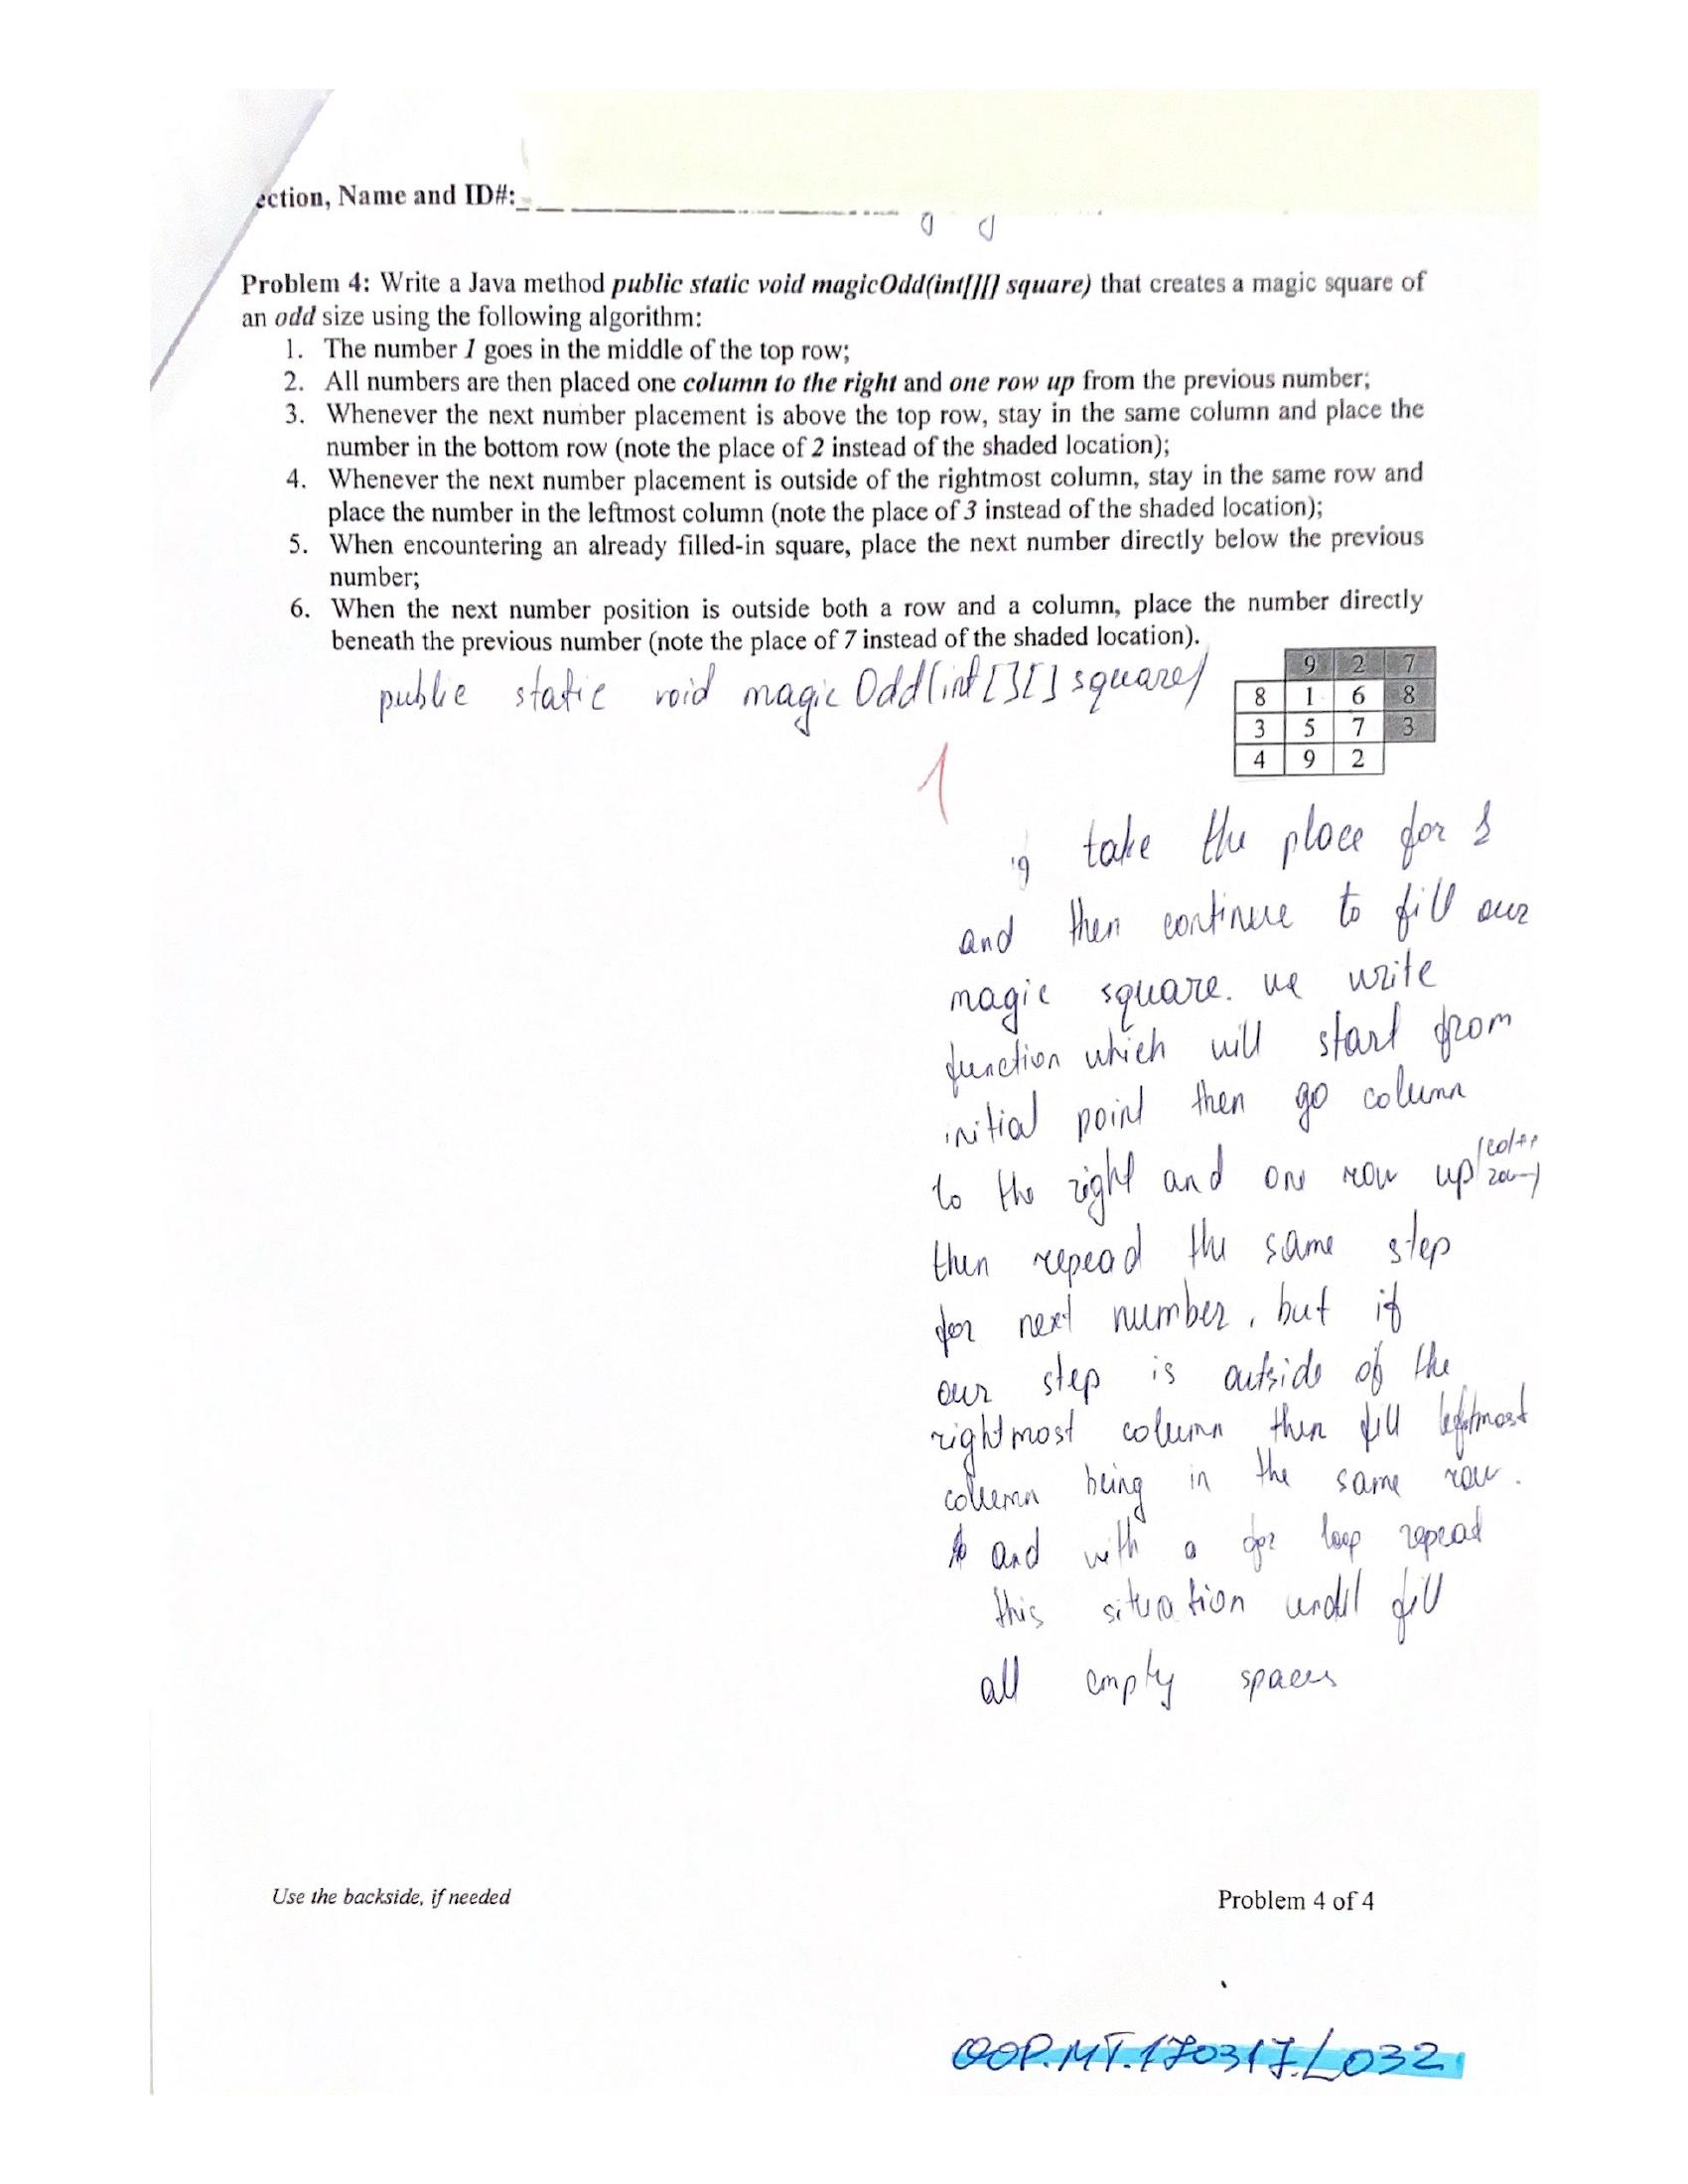 ection, Name and ID#:
Problem 4: Write a Java method public static void magicOdd(int[][] square) that creates a magic square of
an odd size using the following algorithm:
1. The number 1 goes in the middle of the top row;
2. All numbers are then placed one column to the right and one row up from the previous number;
3. Whenever the next number placement is above the top row, stay in the same column and place the
number in the bottom row (note the place of 2 instead of the shaded location);
4. Whenever the next number placement is outside of the rightmost column, stay in the same row and
place the number in the leftmost column (note the place of 3 instead of the shaded location);
5. When encountering an already filled-in square, place the next number directly below the previous
number;
6. When the next number position is outside both a row and a column, place the number directly
beneath the previous number (note the place of 7 instead of the shaded location).
9 2 7
public static void magicOdd(int[][] square)
8 1 6 8
3 5 7 3
4 9 2
1
take the place for 1
and then continue to fill our
magic square. we write
function which will start from
initial point then go column
to the right and one row up (col++
row--)
then repead the same step
for next number, but if
our step is outside of the
rightmost column then fill leftmost
column being in the same row.
and with a for loop repead
this situation until fill
all empty spaces
Use the backside, if needed
Problem 4 of 4
OOP.MT.170317.L032